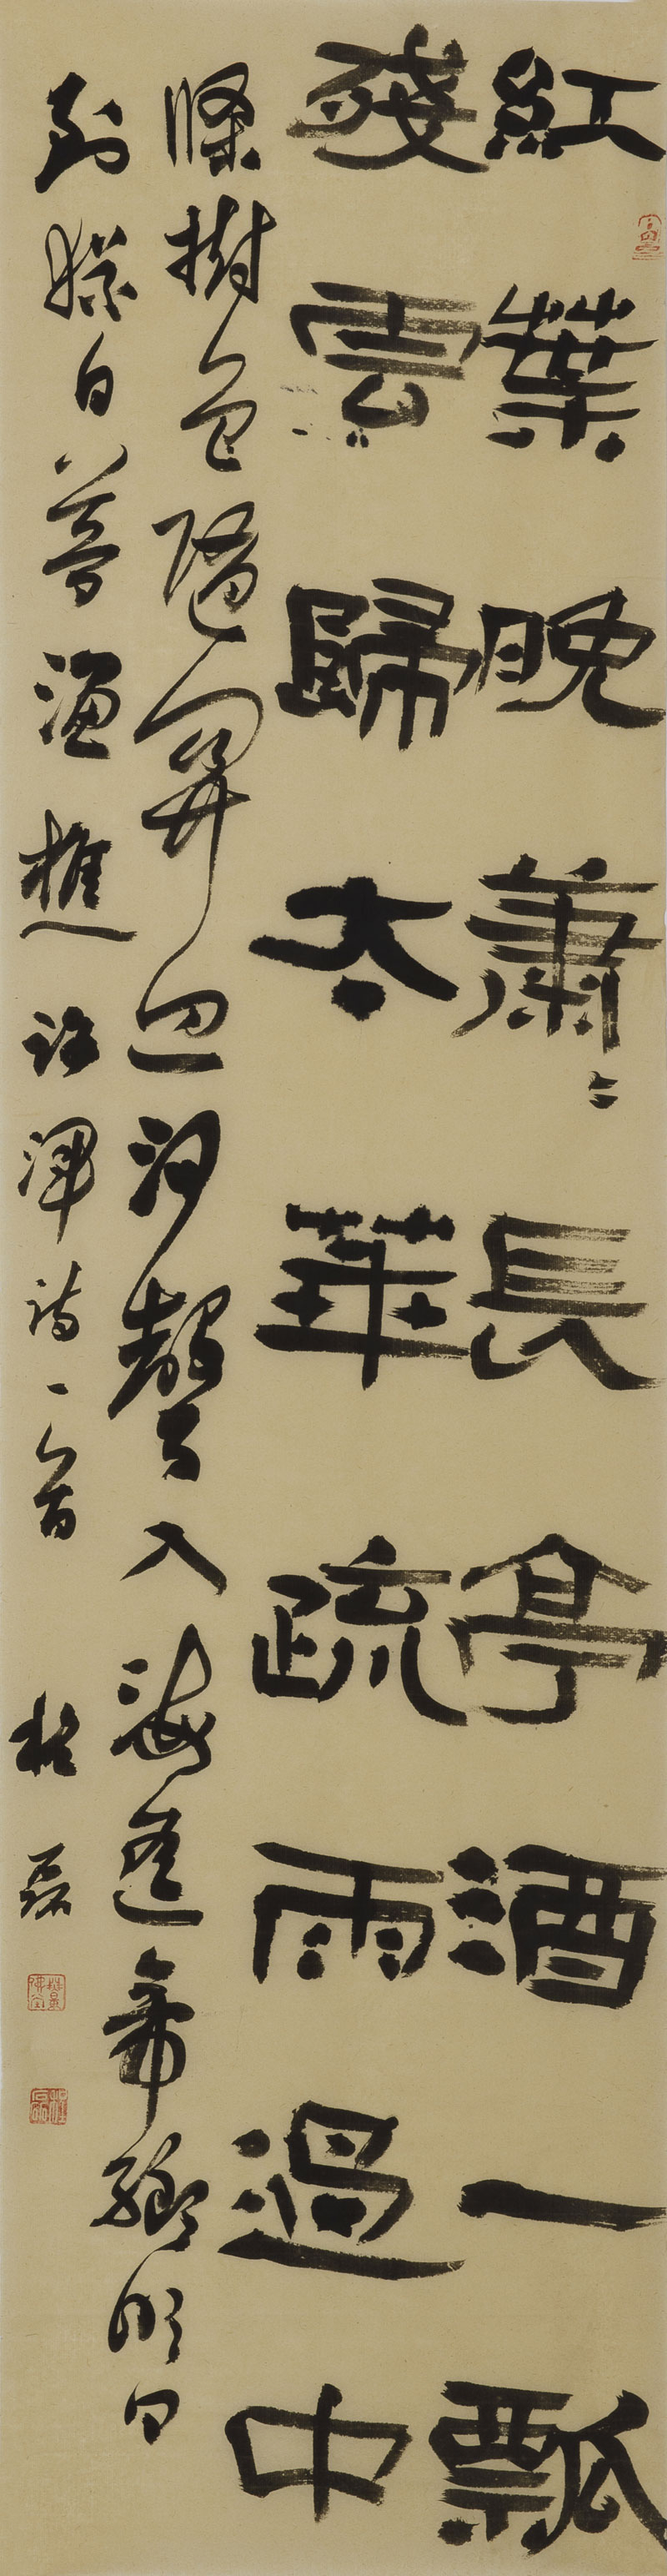 紅葉晚蕭〻長亭酒一瓢
殘雲歸太華疏雨過中
條樹色隨關迥河聲入海遙帝鄉明日
到猶自夢漁樵 許渾詩一首 磊